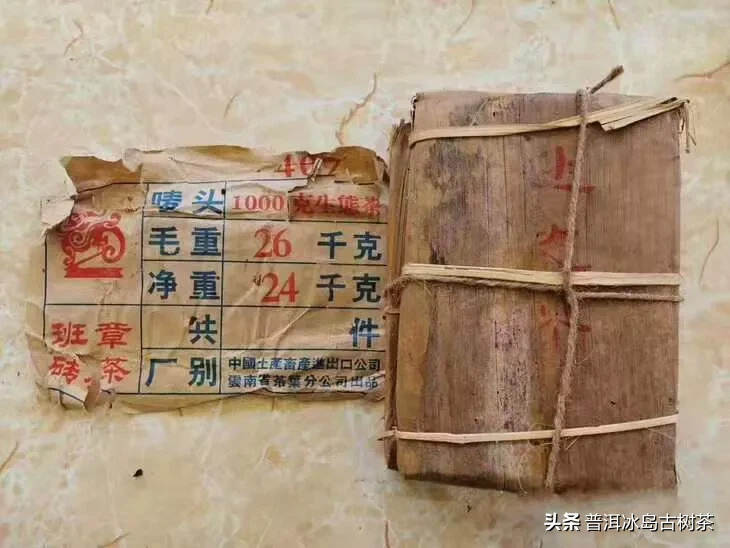 唛头 1000克生態茶
毛重 26 千克
净重 24 千克
共 件
厂别 中國土產畜產進出口公司
雲南省茶葉分公司出品
班章
砖茶
上
头条 普洱冰岛古树茶